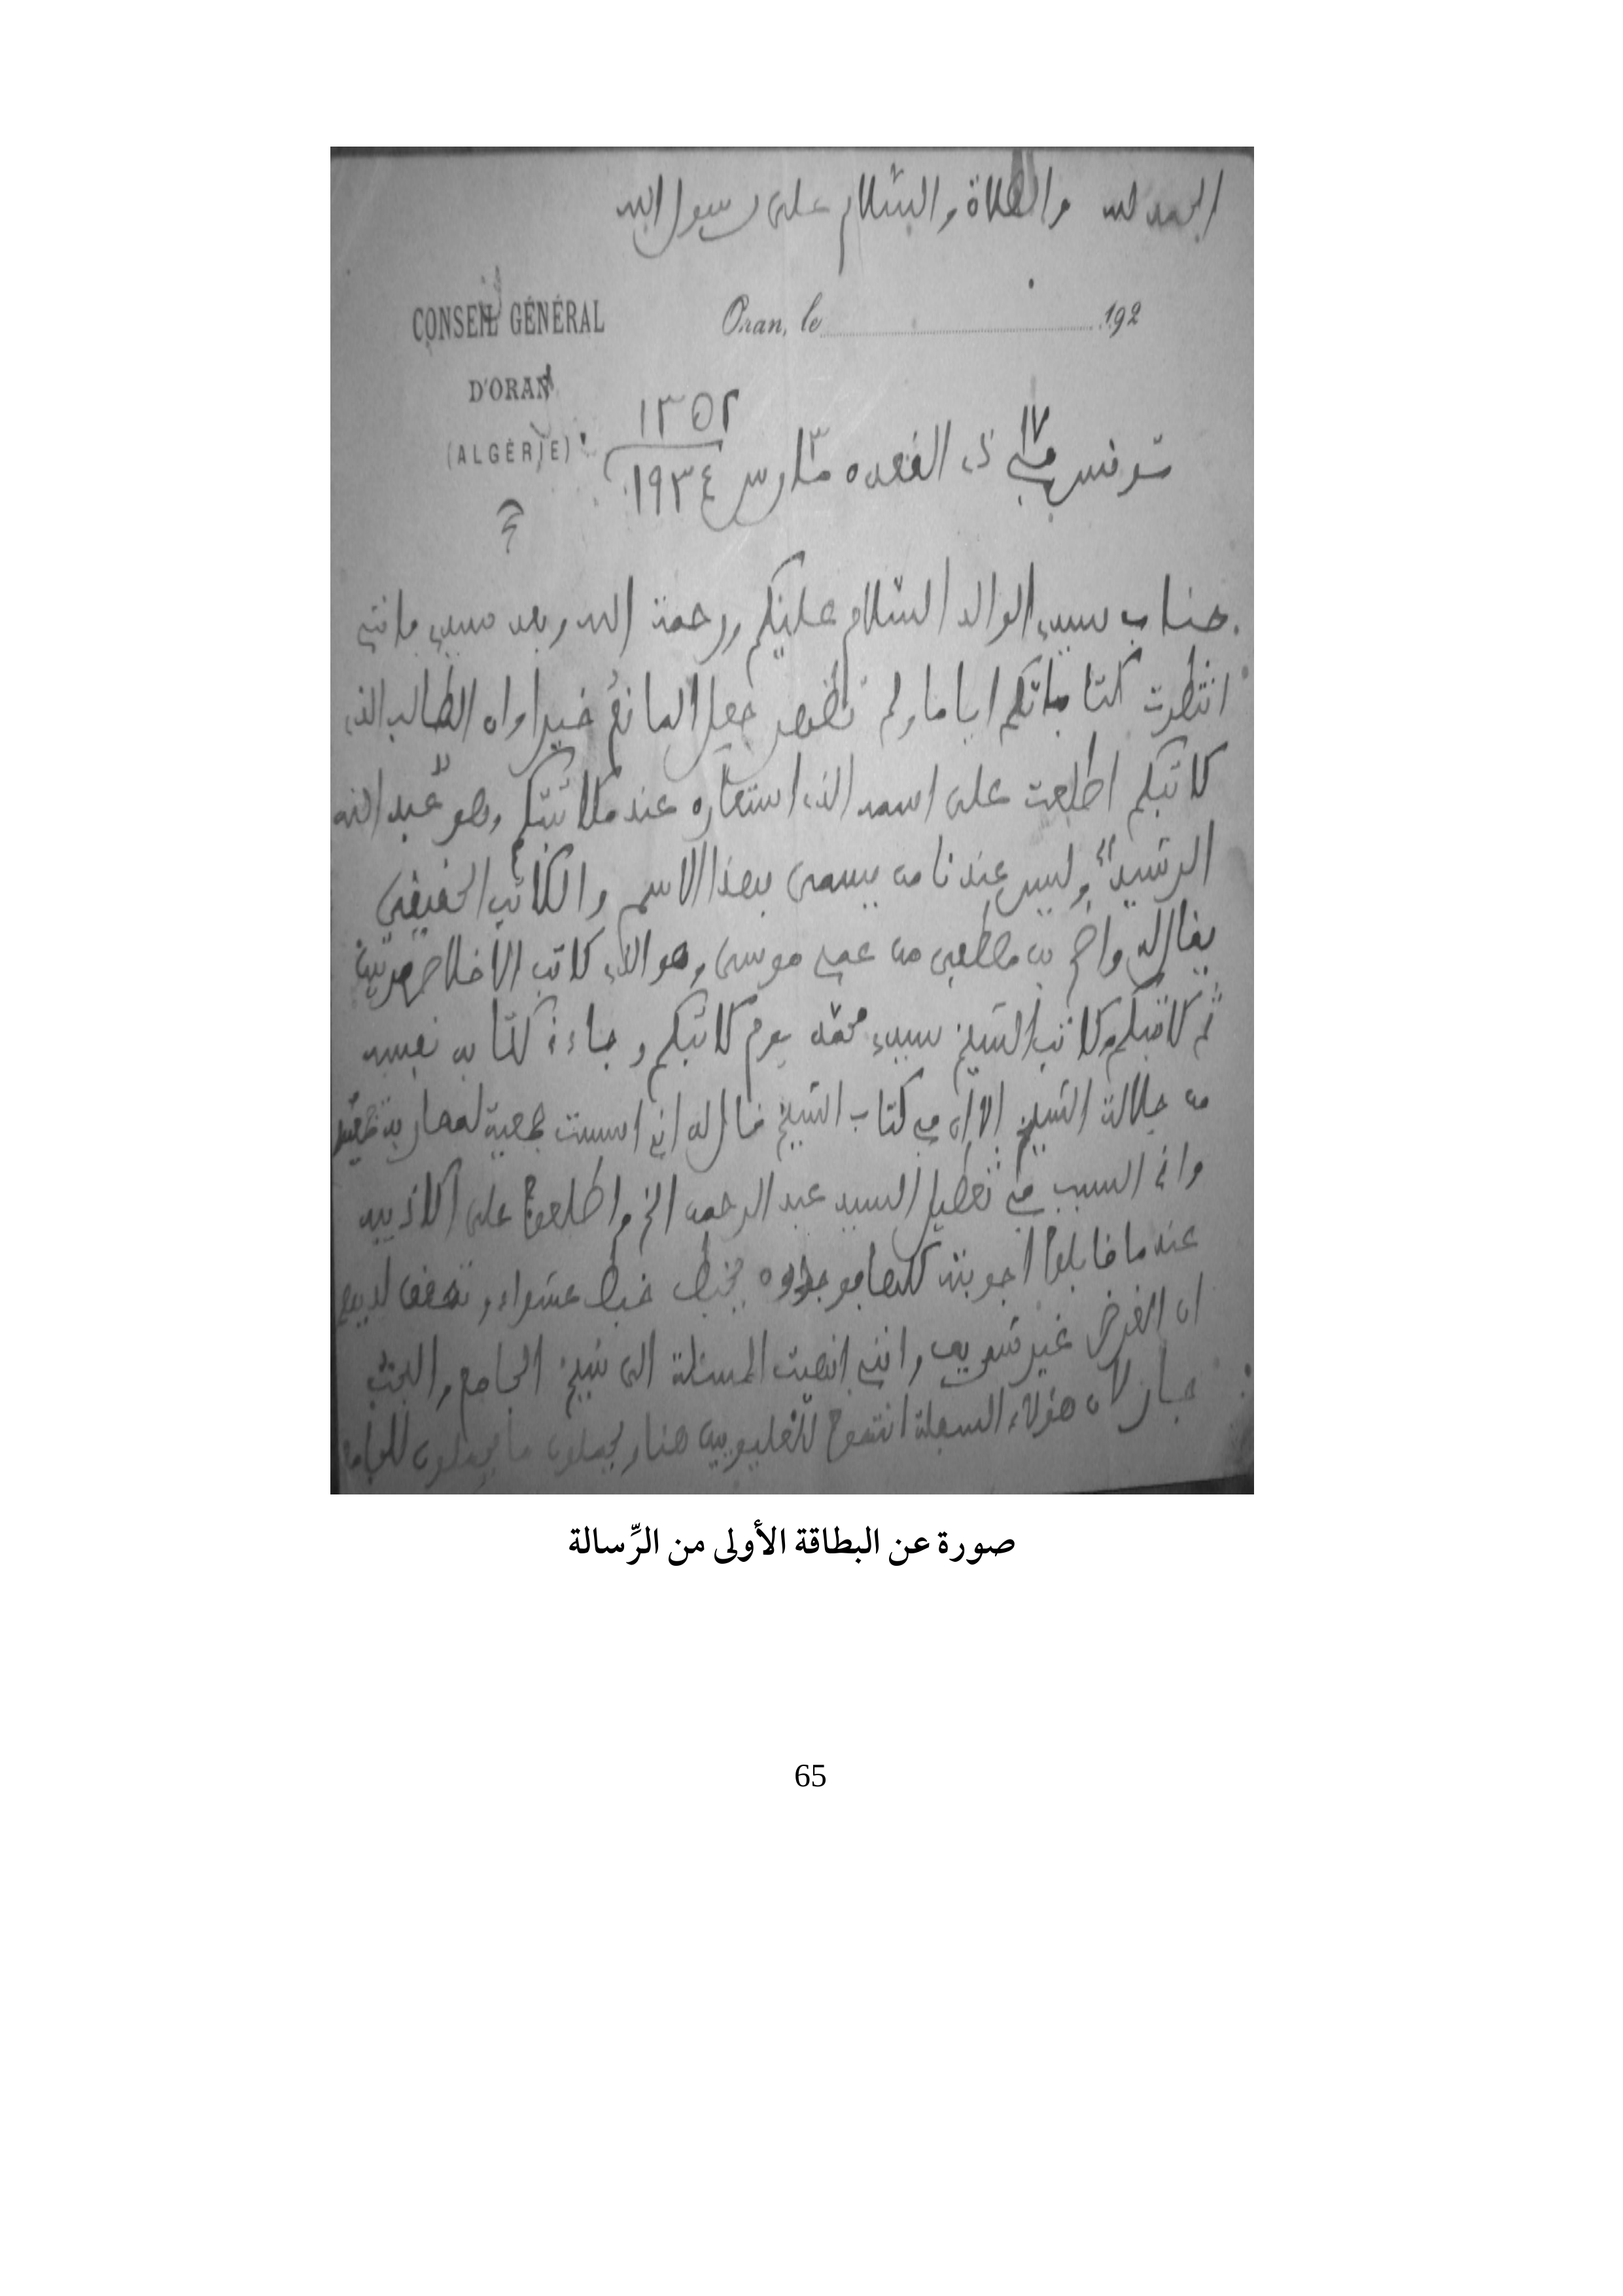 الحمد لله والصلاة والسّلام على رسول الله
CONSEIL GÉNÉRAL
D'ORAN
(ALGÉRIE)
Oran, le 192
تونس في ١٧ ذي القعده ٣ مارس ١٣٥٢ ١٩٣٤
جناب سيدي الوالد السّلام عليكم ورحمة الله وبعد سيدي فانني
انتظرت كتاباتكم اياما ولم تظهر جعل المانع خيرا وان الطالب الذي
كاتبكم اطلعت على اسمه الذي استعاره عند مكاتبتكم وهو "عبد الله
الرشيد" وليس عندنا من يسمى بهذا الاسم والكاتب الحقيقي
يقال له مصطفى من عمي موسى وهو الذي كاتب الاخلاص مرتين
ثم كاتبكم وكاتب الشيخ سيدي محمد يوم كاتبكم وجاءه كتاب نفسه
من جلالة الشيخ الان في كتاب الشيخ قال له اني اسست جمعية لمحاربة
واني السبب في تعطيل السيد عبد الرحمن الخ واطلعوا على اكاذيبه
عندما قابلوا اجوبته كلها فوجدوه يخبط خبط عشواء وتحقق لديهم
ان الغرض غير شريف وانني انهيت المسئلة الى شيخ الجامع والبحث
جار لان هؤلاء السفلة هنا
صورة عن البطاقة الأولى من الرِّسالة
65